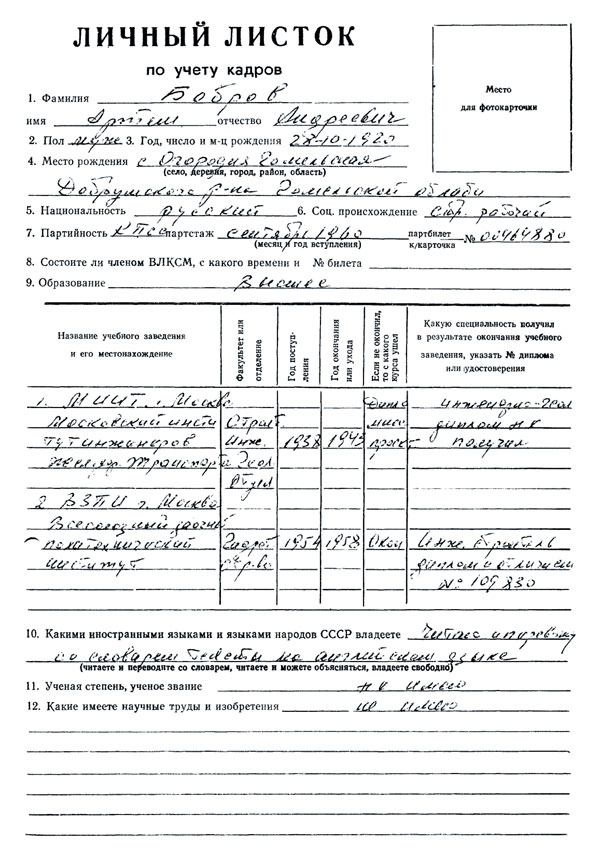 ЛИЧНЫЙ ЛИСТОК
по учету кадров
Место
для фотокарточки
1. Фамилия Бобров
имя Артем отчество Андреевич
2. Пол муж 3. Год, число и м-ц рождения 28-10-1920
4. Место рождения с Огородня Гомельская
(село, деревня, город, район, область)
Добрушского р-на Гомельской области
5. Национальность русский 6. Соц. происхождение рабочий
7. Партийность КПСС партстаж сентябрь 1960 партбилет
(месяц и год вступления) к/карточка № 00464880
8. Состоите ли членом ВЛКСМ, с какого времени и № билета
9. Образование Высшее
Название учебного заведения
и его местонахождение
Факультет или
отделение
Год поступ-
ления
Год окончания
или ухода
Если не окончил,
то с какого
курса ушел
Какую специальность получил
в результате окончания учебного
заведения, указать № диплома
или удостоверения
1. МИИТ г. Москва
Московский инсти Строит. диплом не
тут инженеров Инж. 1938 1943 проект получил
жел. дор. транспорта Геол
2 ВЗПИ г. Москва
Всесоюзный заочный
политехнический 1954 1958 Окон Инж. строитель
институт диплом с отличием
№ 109830
10. Какими иностранными языками и языками народов СССР владеете Читаю и перевожу
со словарем тексты на английском языке
(читаете и переводите со словарем, читаете и можете объясняться, владеете свободно)
11. Ученая степень, ученое звание не имею
12. Какие имеете научные труды и изобретения не имею